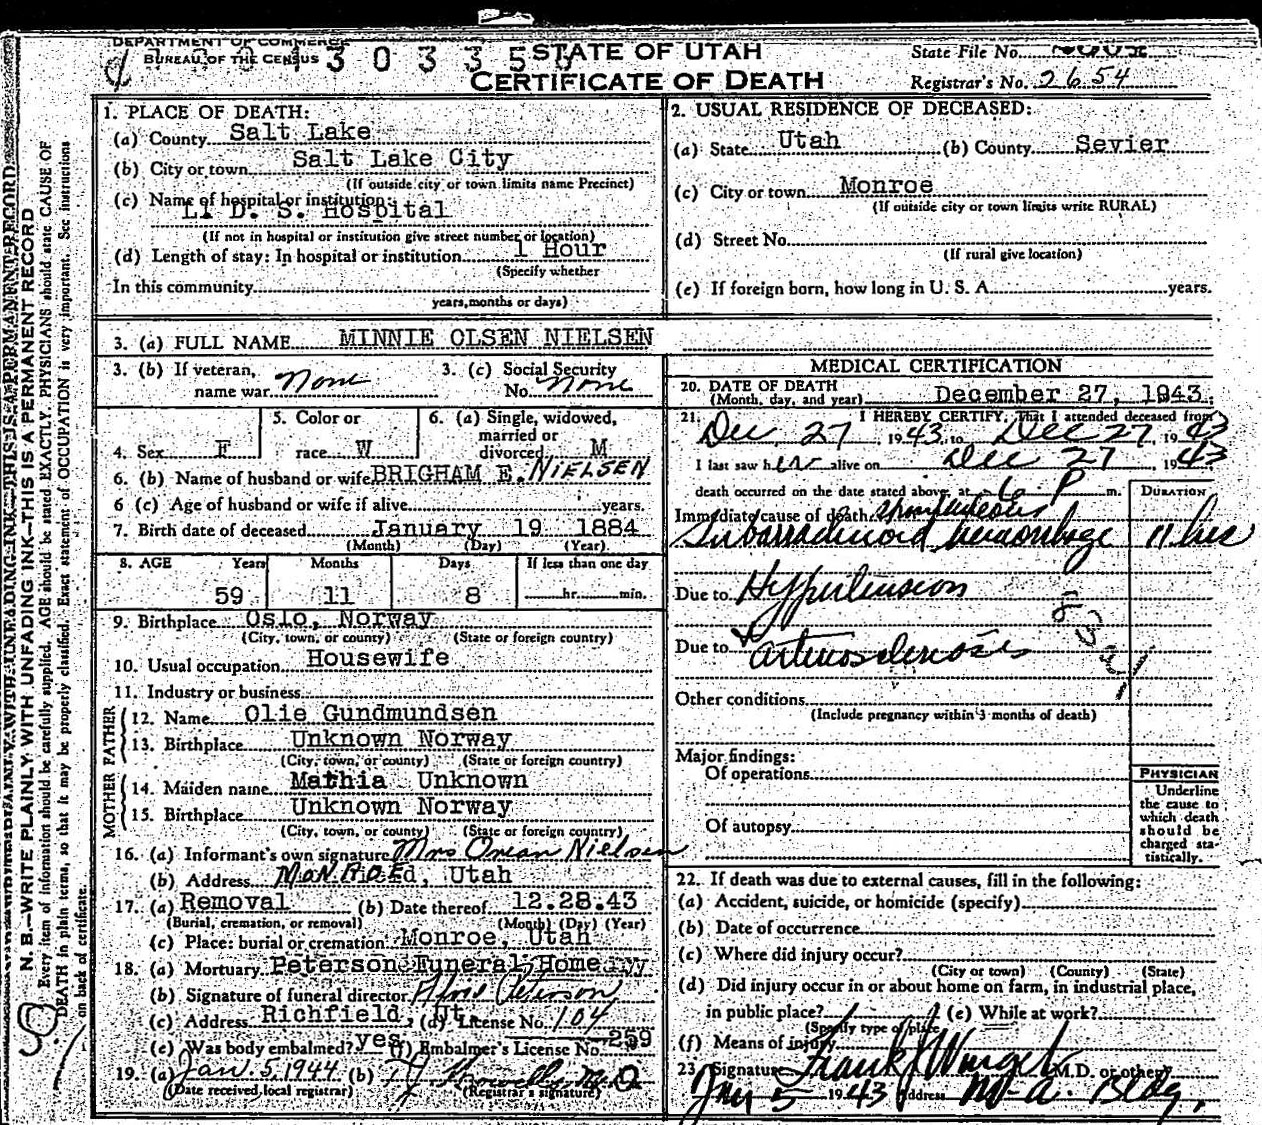 DEPARTMENT OF COMMERCE
BUREAU OF THE CENSUS
STATE OF UTAH
CERTIFICATE OF DEATH
State File No.
Registrar's No. 2654
1. PLACE OF DEATH:
(a) County Salt Lake
(b) City or town Salt Lake City
(If outside city or town limits name Precinct)
(c) Name of hospital or institution:
L. D. S. Hospital
(If not in hospital or institution give street number or location)
(d) Length of stay: In hospital or institution 1 Hour
(Specify whether
In this community
years, months or days)
2. USUAL RESIDENCE OF DECEASED:
(a) State Utah (b) County Sevier
(c) City or town Monroe
(If outside city or town limits write RURAL)
(d) Street No.
(If rural give location)
(e) If foreign born, how long in U. S. A. years.
3. (a) FULL NAME MINNIE OLSEN NIELSEN
3. (b) If veteran, name war None
3. (c) Social Security No. None
4. Sex F
5. Color or race W
6. (a) Single, widowed, married or divorced M
6. (b) Name of husband or wife BRIGHAM E. NIELSEN
6 (c) Age of husband or wife if alive years.
7. Birth date of deceased January 19 1884
(Month) (Day) (Year)
8. AGE Years Months Days If less than one day
59 11 8 hr. min.
9. Birthplace Oslo, Norway
(City, town, or county) (State or foreign country)
10. Usual occupation Housewife
11. Industry or business
FATHER
12. Name Olie Gundmundsen
13. Birthplace Unknown Norway
(City, town, or county) (State or foreign country)
MOTHER
14. Maiden name Mathia Unknown
15. Birthplace Unknown Norway
(City, town, or county) (State or foreign country)
16. (a) Informant's own signature Mrs Orean Nielsen
(b) Address Monroe, Utah
17. (a) Removal (b) Date thereof 12.28.43
(Burial, cremation, or removal) (Month) (Day) (Year)
(c) Place: burial or cremation Monroe, Utah
18. (a) Mortuary Peterson Funeral Home
(b) Signature of funeral director Peterson
(c) Address Richfield, Ut. (d) License No. 104
(e) Was body embalmed? yes (f) Embalmer's License No. 259
19. (a) Jan. 5, 1944 (b) M.D.
(Date received local registrar) (Registrar's signature)
MEDICAL CERTIFICATION
20. DATE OF DEATH
(Month, day, and year) December 27, 1943.
21. I HEREBY CERTIFY, That I attended deceased from
Dec 27, 1943, to Dec 27, 1943
I last saw her alive on Dec 27, 1943
death occurred on the date stated above, at 6 P m.
DURATION
Immediate cause of death spontaneous
Subarachnoid hemorrhage 11 hrs
Due to Hypertension
Due to arteriosclerosis
83a1
Other conditions
(Include pregnancy within 3 months of death)
Major findings:
Of operations
Of autopsy
PHYSICIAN
Underline
the cause to
which death
should be
charged sta-
tistically.
22. If death was due to external causes, fill in the following:
(a) Accident, suicide, or homicide (specify)
(b) Date of occurrence
(c) Where did injury occur?
(City or town) (County) (State)
(d) Did injury occur in or about home on farm, in industrial place,
in public place? (e) While at work?
(Specify type of place)
(f) Means of injury
23. Signature Frank J Winget (M.D. or other)
Jan 5 1943 Address M-a. Bldg.
N. B.—WRITE PLAINLY WITH UNFADING INK—THIS IS A PERMANENT RECORD
Every item of information should be carefully supplied. AGE should be stated EXACTLY. PHYSICIANS should state CAUSE OF
DEATH in plain terms, so that it may be properly classified. Exact statement of OCCUPATION is very important. See instructions
on back of certificate.